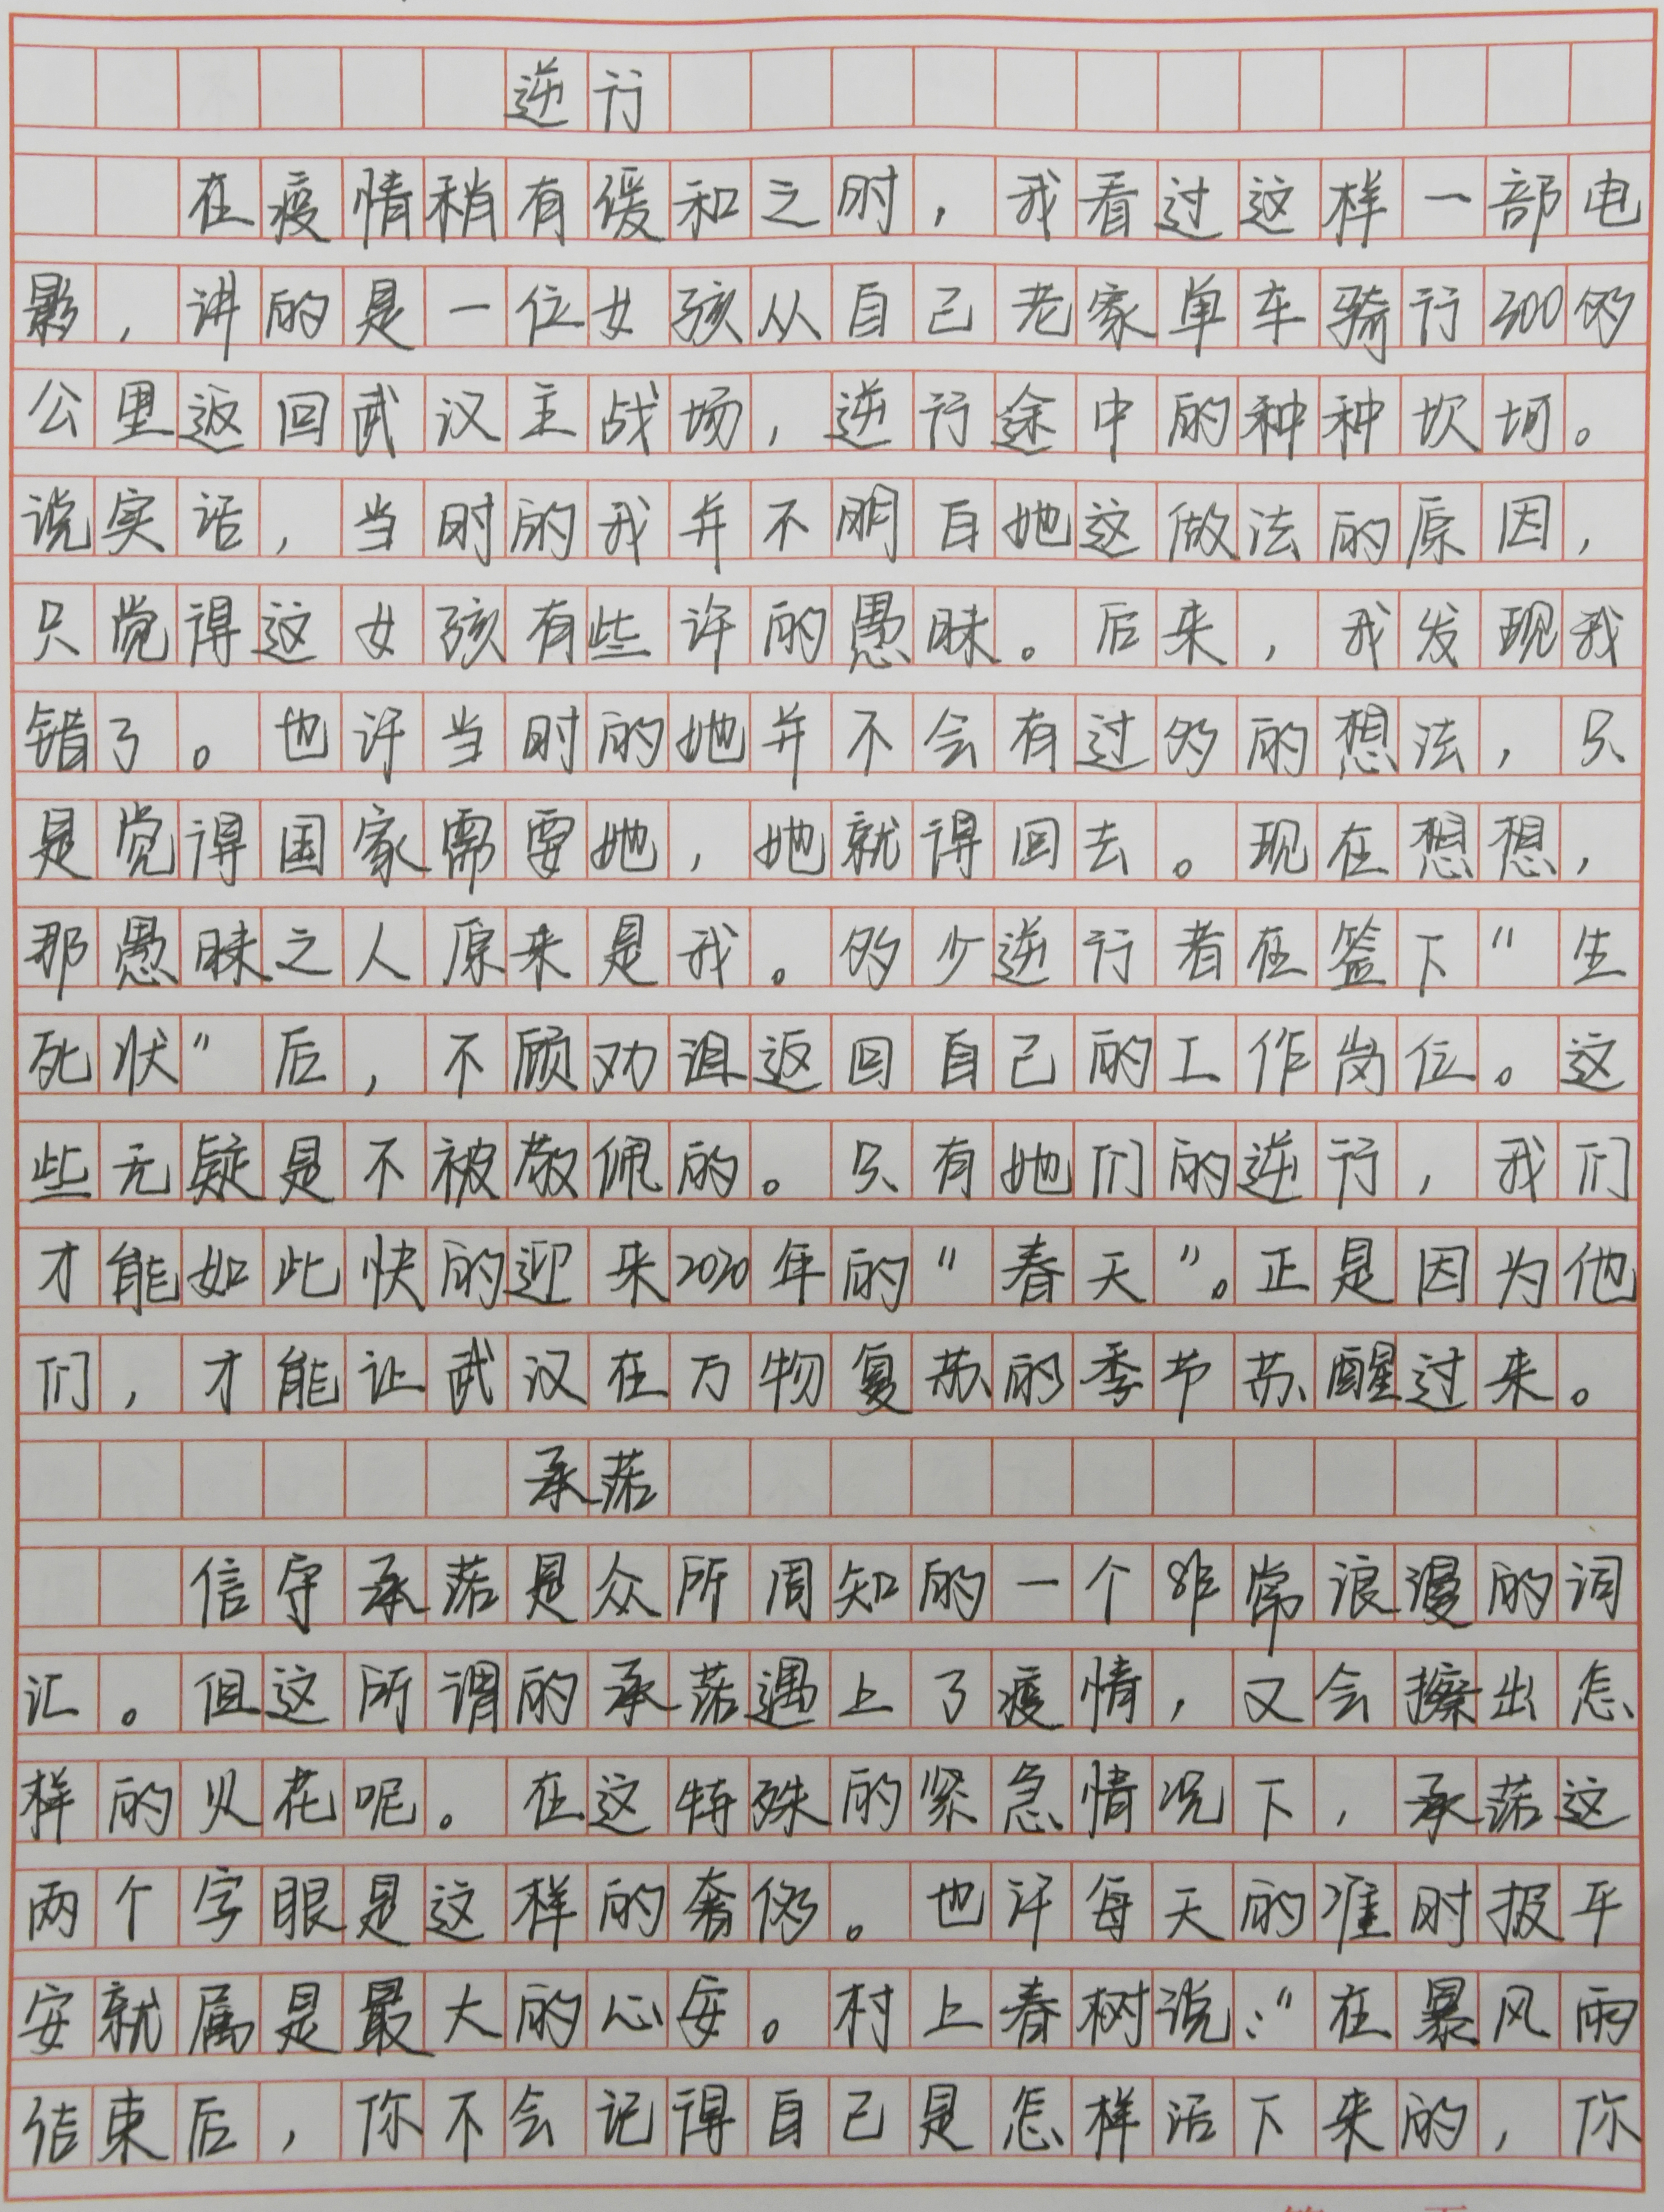 逆行
在疫情稍有缓和之时，我看过这样一部电
影，讲的是一位女孩从自己老家单车骑行300多
公里返回武汉主战场，逆行途中的种种坎坷。
说实话，当时的我并不明白她这做法的原因，
只觉得这女孩有些许的愚昧。后来，我发现我
错了。也许当时的她并不会有过多的想法，只
是觉得国家需要她，她就得回去。现在想想，
那愚昧之人原来是我。多少逆行者在签下"生
死状"后，不顾劝阻返回自己的工作岗位。这
些无疑是不被敬佩的。只有她们的逆行，我们
才能如此快的迎来2020年的"春天"。正是因为他
们，才能让武汉在万物复苏的季节苏醒过来。
承诺
信守承诺是众所周知的一个非常浪漫的词
汇。但这所谓的承诺遇上了疫情，又会擦出怎
样的火花呢。在这特殊的紧急情况下，承诺这
两个字眼是这样的奢侈。也许每天的准时报平
安就属是最大的心安。村上春树说："在暴风雨
结束后，你不会记得自己是怎样活下来的，你